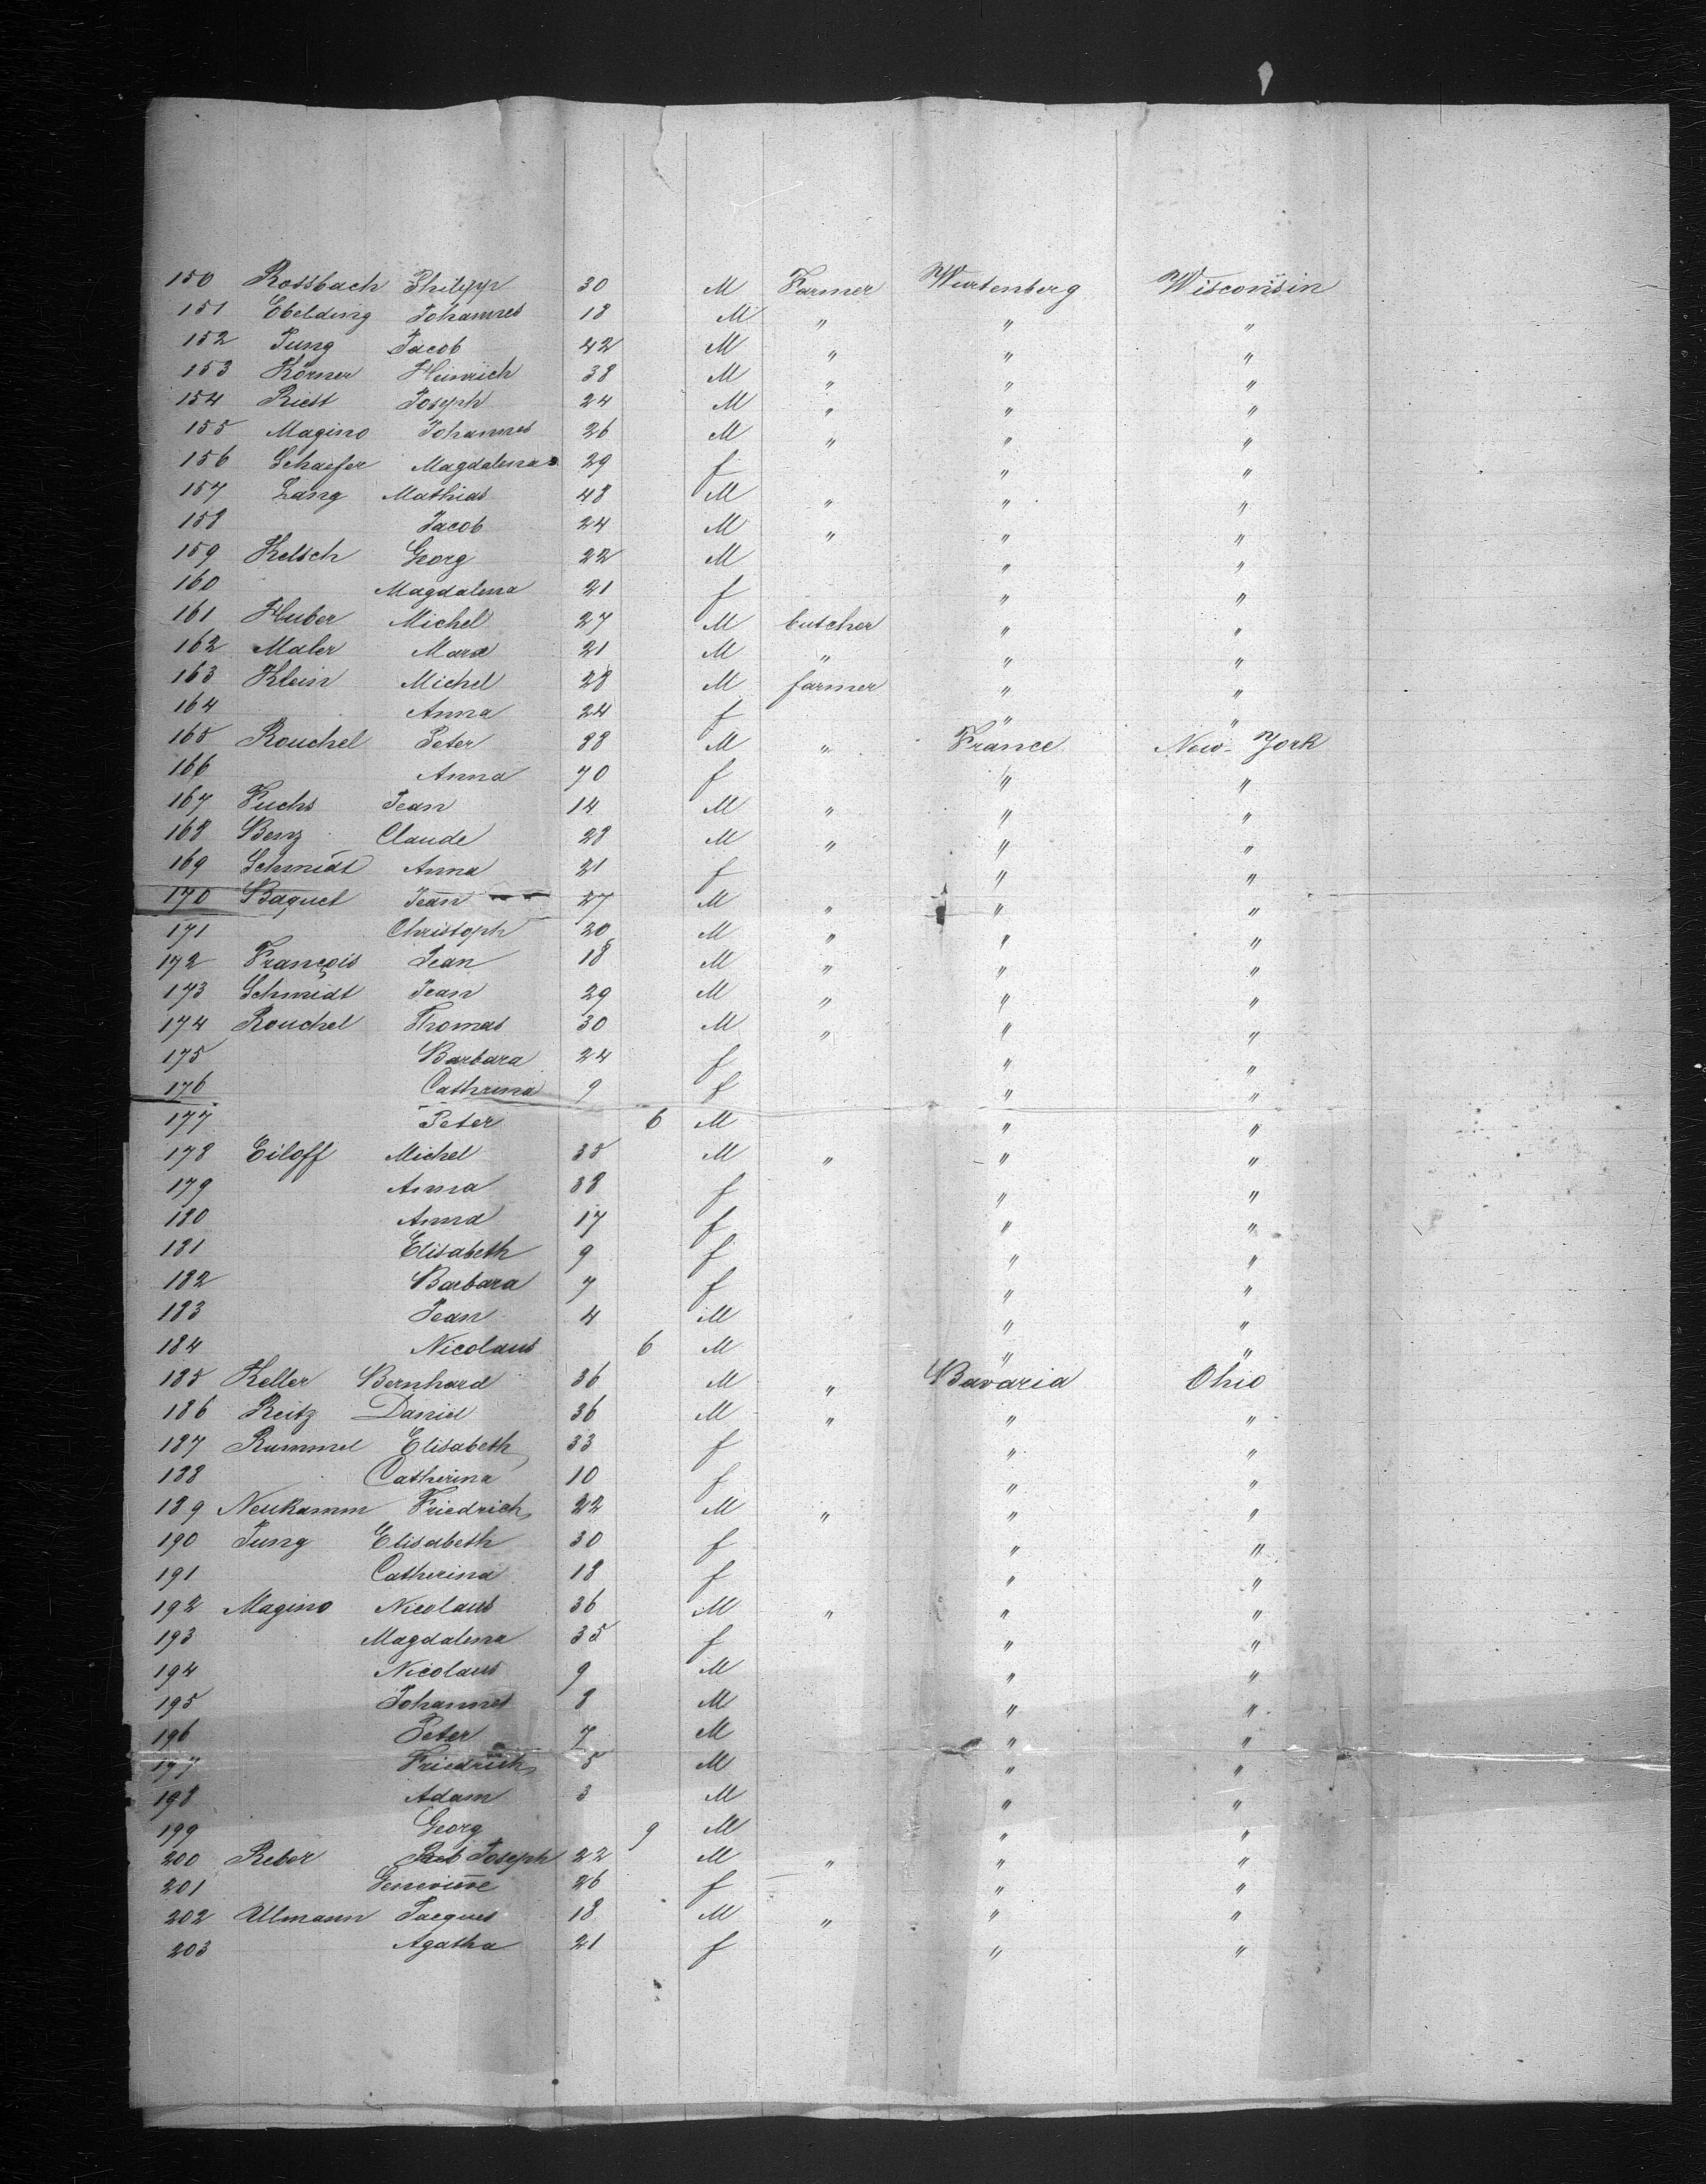 150 Rossbach Philipp 30 M Farmer Wurtenberg Wisconsin
151 Ebelding Johannes 18 M " " "
152 Jung Jacob 42 M " " "
153 Körner Heinrich 38 M " " "
154 Riest Joseph 24 M " " "
155 Magino Johannes 26 M " " "
156 Schaefer Magdalena 29 f " "
157 Lang Mathias 48 M " " "
158 Jacob 24 M " " "
159 Kelsch Georg 22 M " "
160 Magdalena 21 f " "
161 Huber Michel 27 M butcher " "
162 Maler Marx 21 M " " "
163 Klein Michel 28 M farmer " "
164 Anna 24 f " "
165 Rouchel Peter 38 M " France New-York
166 Anna 70 f " "
167 Fuchs Jean 14 M " " "
168 Benz Claude 28 M " " "
169 Schmidt Anna 21 f " "
170 Baquet Jean 27 M " " "
171 Christoph 20 M " " "
172 François Jean 18 M " " "
173 Schmidt Jean 29 M " " "
174 Rouchel Thomas 30 M " " "
175 Barbara 24 f " "
176 Cathrina 9 f " "
177 Peter 6 M " "
178 Eiloff Michel 35 M " " "
179 Anna 38 f " "
180 Anna 17 f " "
181 Elisabeth 9 f " "
182 Barbara 7 f " "
183 Jean 4 M " "
184 Nicolaus 6 M " "
185 Keller Bernhard 36 M " Bavaria Ohio
186 Reitz Daniel 36 M " " "
187 Rummel Elisabeth 33 f " "
188 Catherina 10 f " "
189 Neukamm Friedrich 22 M " " "
190 Jung Elisabeth 30 f " "
191 Catherina 18 f " "
192 Magino Nicolaus 36 M " " "
193 Magdalena 35 f " "
194 Nicolaus 9 M " "
195 Johannes 8 M " "
196 Peter 7 M " "
197 Friedrich 5 M " "
198 Adam 3 M " "
199 Georg 9 M " "
200 Reber Joseph 22 M " " "
201 Genevieve 26 f " "
202 Ullmann Jacques 18 M " " "
203 Agatha 21 f " "